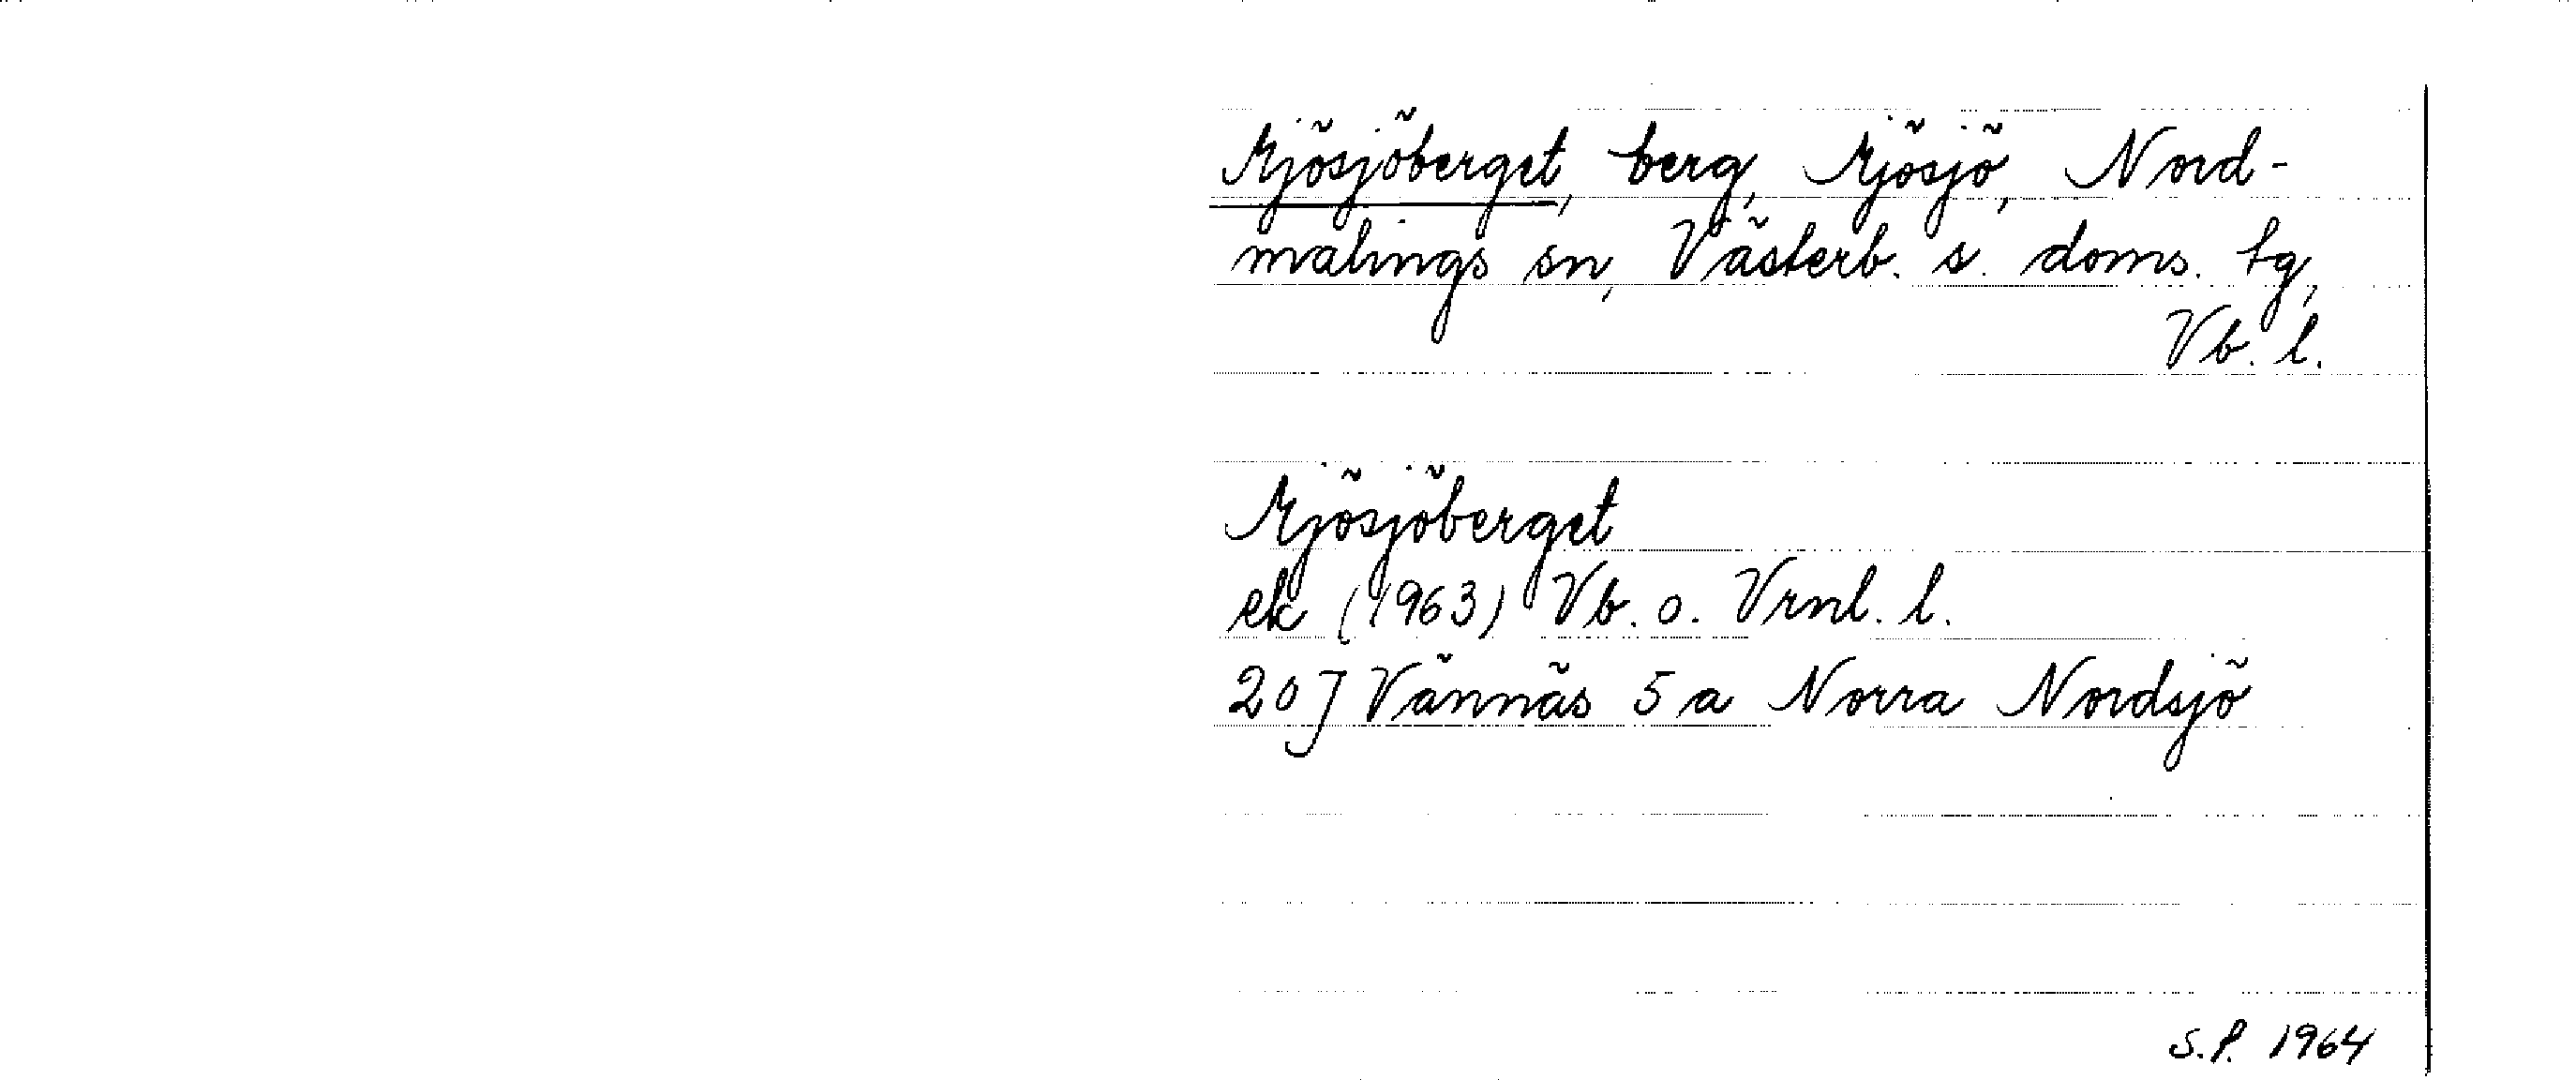 Mjösjöberget, berg, Mjösjö, Nord-
malings sn, Västerb. s. doms. tg,
Vb. l.
Mjösjöberget
ek (1963) Vb. o. Vrnl. l.
20J Vännäs 5 a Norra Nordsjö
S.P. 1964